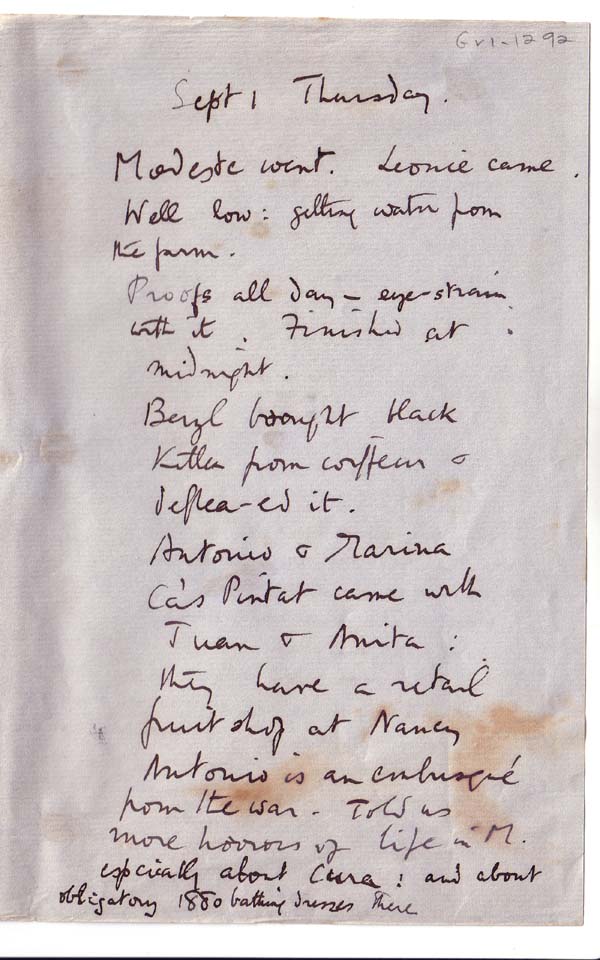 Gv1-1292
Sept 1 Thursday.
Modeste went. Leonie came.
Well low: getting water from
the farm.
Proofs all day – eye-strain
with it. Finished at
midnight.
Beryl brought black
Kitten from coiffeur &
deflea-ed it.
Antonio & Marina
Ca's Pintat came with
Juan & Anita:
they have a retail
fruit shop at Nancy
Antonio is an embusqué
from the war. Told us
more horrors of life in M.
especially about Cura: and about
obligatory 1880 bathing dresses there